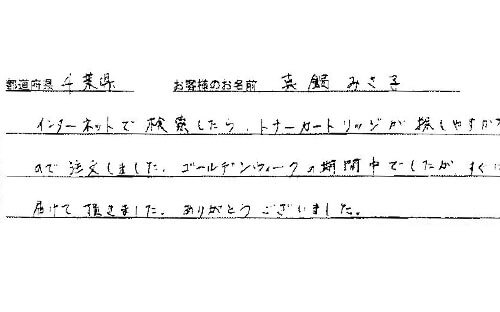 都道府県 千葉県 お客様のお名前 真鍋 みさ子
インターネットで検索したら、トナーカートリッジが探しやすかった
ので注文しました。ゴールデンウィークの期間中でしたが、すぐに
届けて頂きました。ありがとうございました。